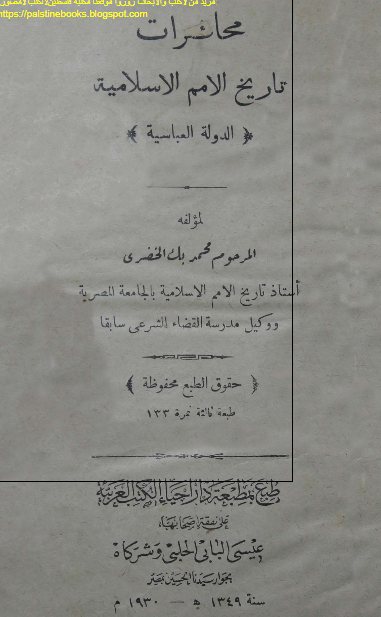 مزيد من الكتب والأبحاث زوروا موقعنا مكتبة فلسطين للكتب المصورة
https://palstinebooks.blogspot.com
محاضرات
تاريخ الامم الاسلامية
﴿ الدولة العباسية ﴾
لمؤلفه
المرحوم محمد بك الخضرى
أستاذ تاريخ الامم الاسلامية بالجامعة المصرية
ووكيل مدرسة القضاء الشرعى سابقا
﴿ حقوق الطبع محفوظة ﴾
طبعة ثالثة نمرة ١٣٣
طبع بمطبعة دار احياء الكتب العربية
على نفقة اصحابها
عيسى البابى الحلبى وشركاه
بجوار سيدنا الحسين بمصر
سنة ١٣٤٩ ه — ١٩٣٠ م